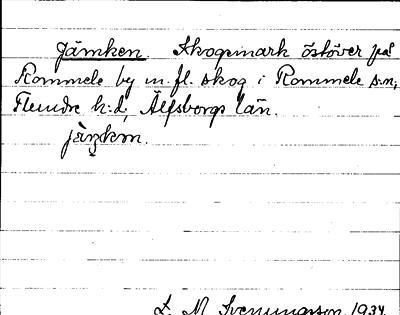 Jämken. Skogsmark östöver på
Rommele by m. fl. skog i Rommele s:n,
Flundre h:d, Älfsborgs län.
jämkm.
L. M. Svenungsson 1934